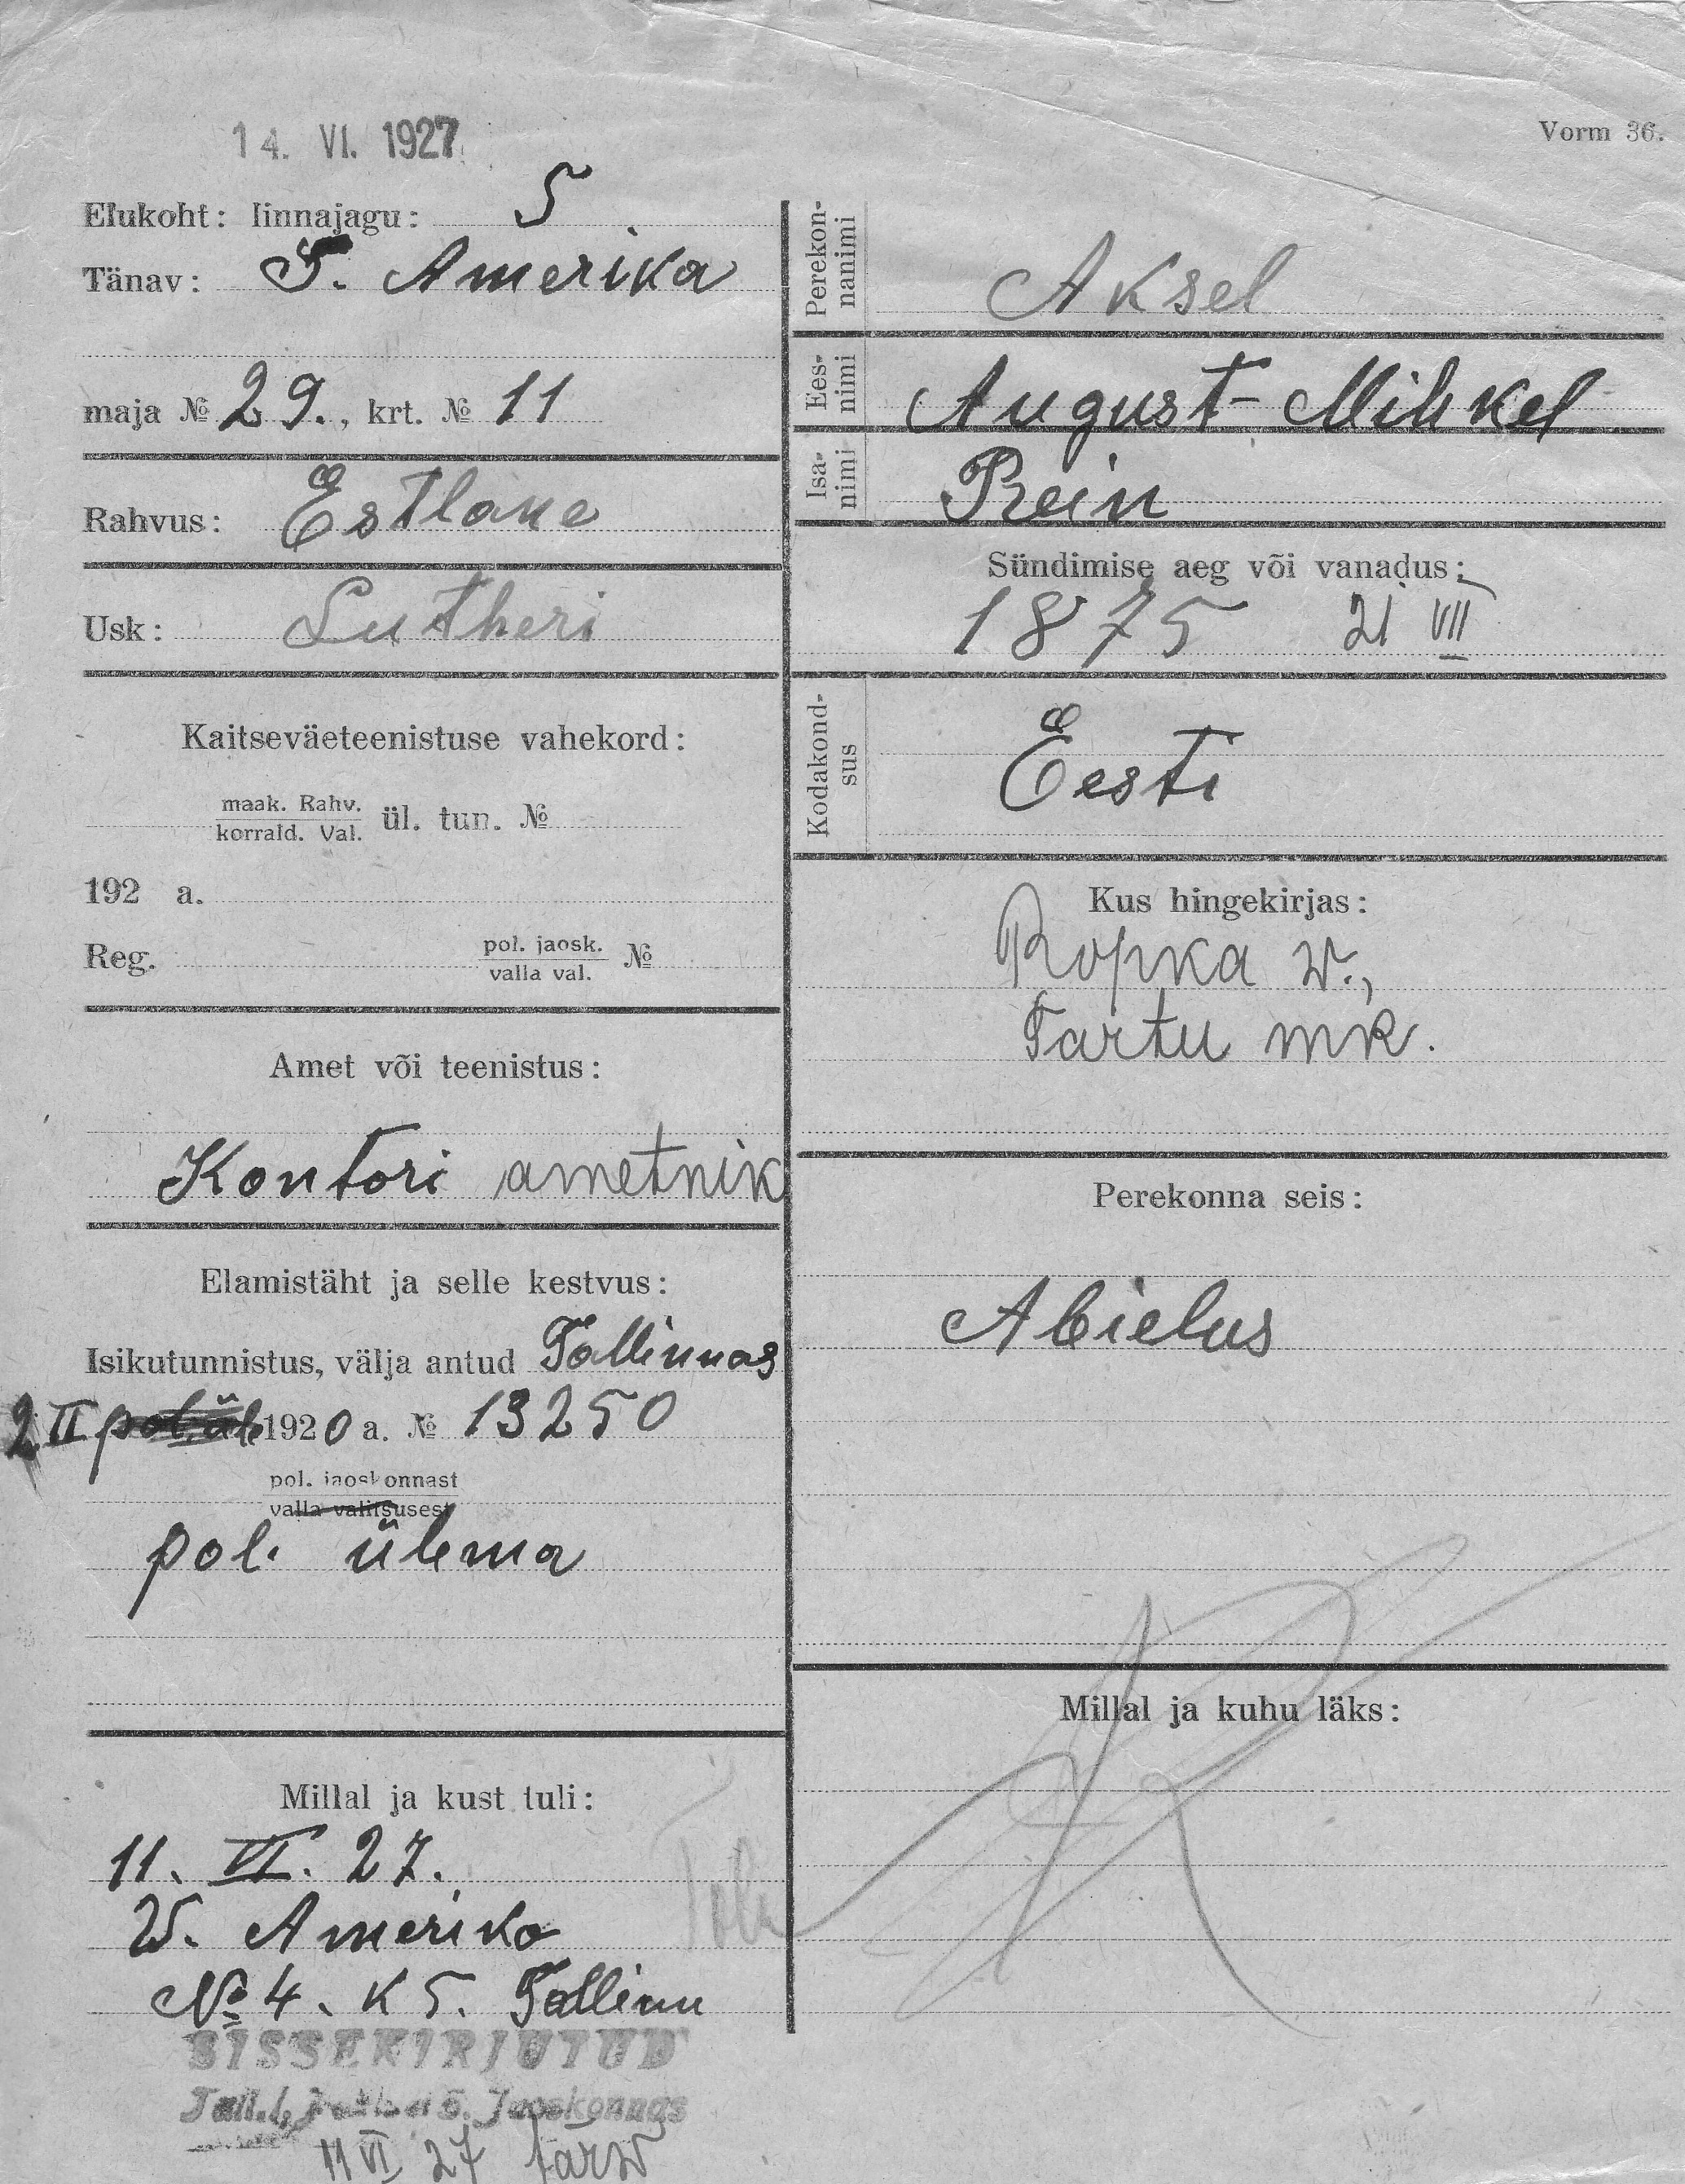 14. VI. 1927
Vorm 36.
Elukoht: linnajagu: 5
Tänav: S. Amerika
maja № 29., krt. № 11
Rahvus: Estlane
Usk: Lutheri
Kaitseväeteenistuse vahekord:
maak. Rahv.
korrald. Val. ül. tun. №
192 a.
Reg. pol. jaosk. №
valla val.
Amet või teenistus:
Kontori ametnik
Elamistäht ja selle kestvus:
Isikutunnistus, välja antud Tallinnas
2 II pol. ül. 1920 a. № 13250
pol. jaoskonnast
valla valitsusest
pol. ülema
Millal ja kust tuli:
11. VI. 27.
W. Amerika
№ 4. K 5. Tallinn
SISSEKIRJUTUD
Tall. 5. Jaoskonnas
11 VI 27
Perekonnanimi Aksel
Eesnimi August-Mihkel
Isanimi Rein
Sündimise aeg või vanadus:
1875 21 VII
Kodakondsus Eesti
Kus hingekirjas:
Ropka w.,
Tartu mk.
Perekonna seis:
Abielus
Millal ja kuhu läks: